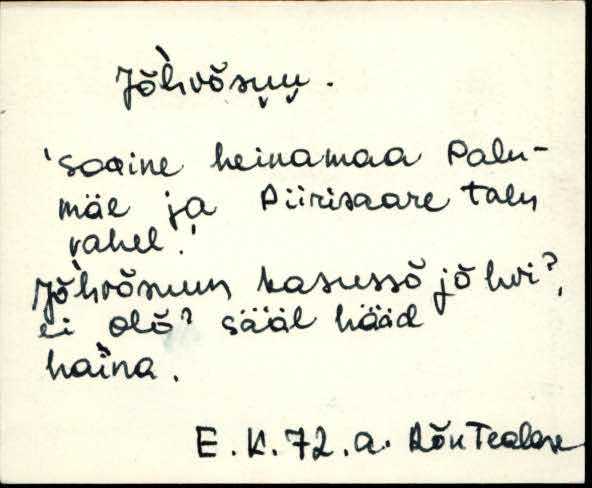 Jõhvõsuu.
'Sooine heinamaa Palu-
mäe ja Piirisaare talu
vahel.'
Jõhvõsuun kasussõ jõhvi?,
ei olõ? sääl hääd
haina.
E.K.72.a. Rõu